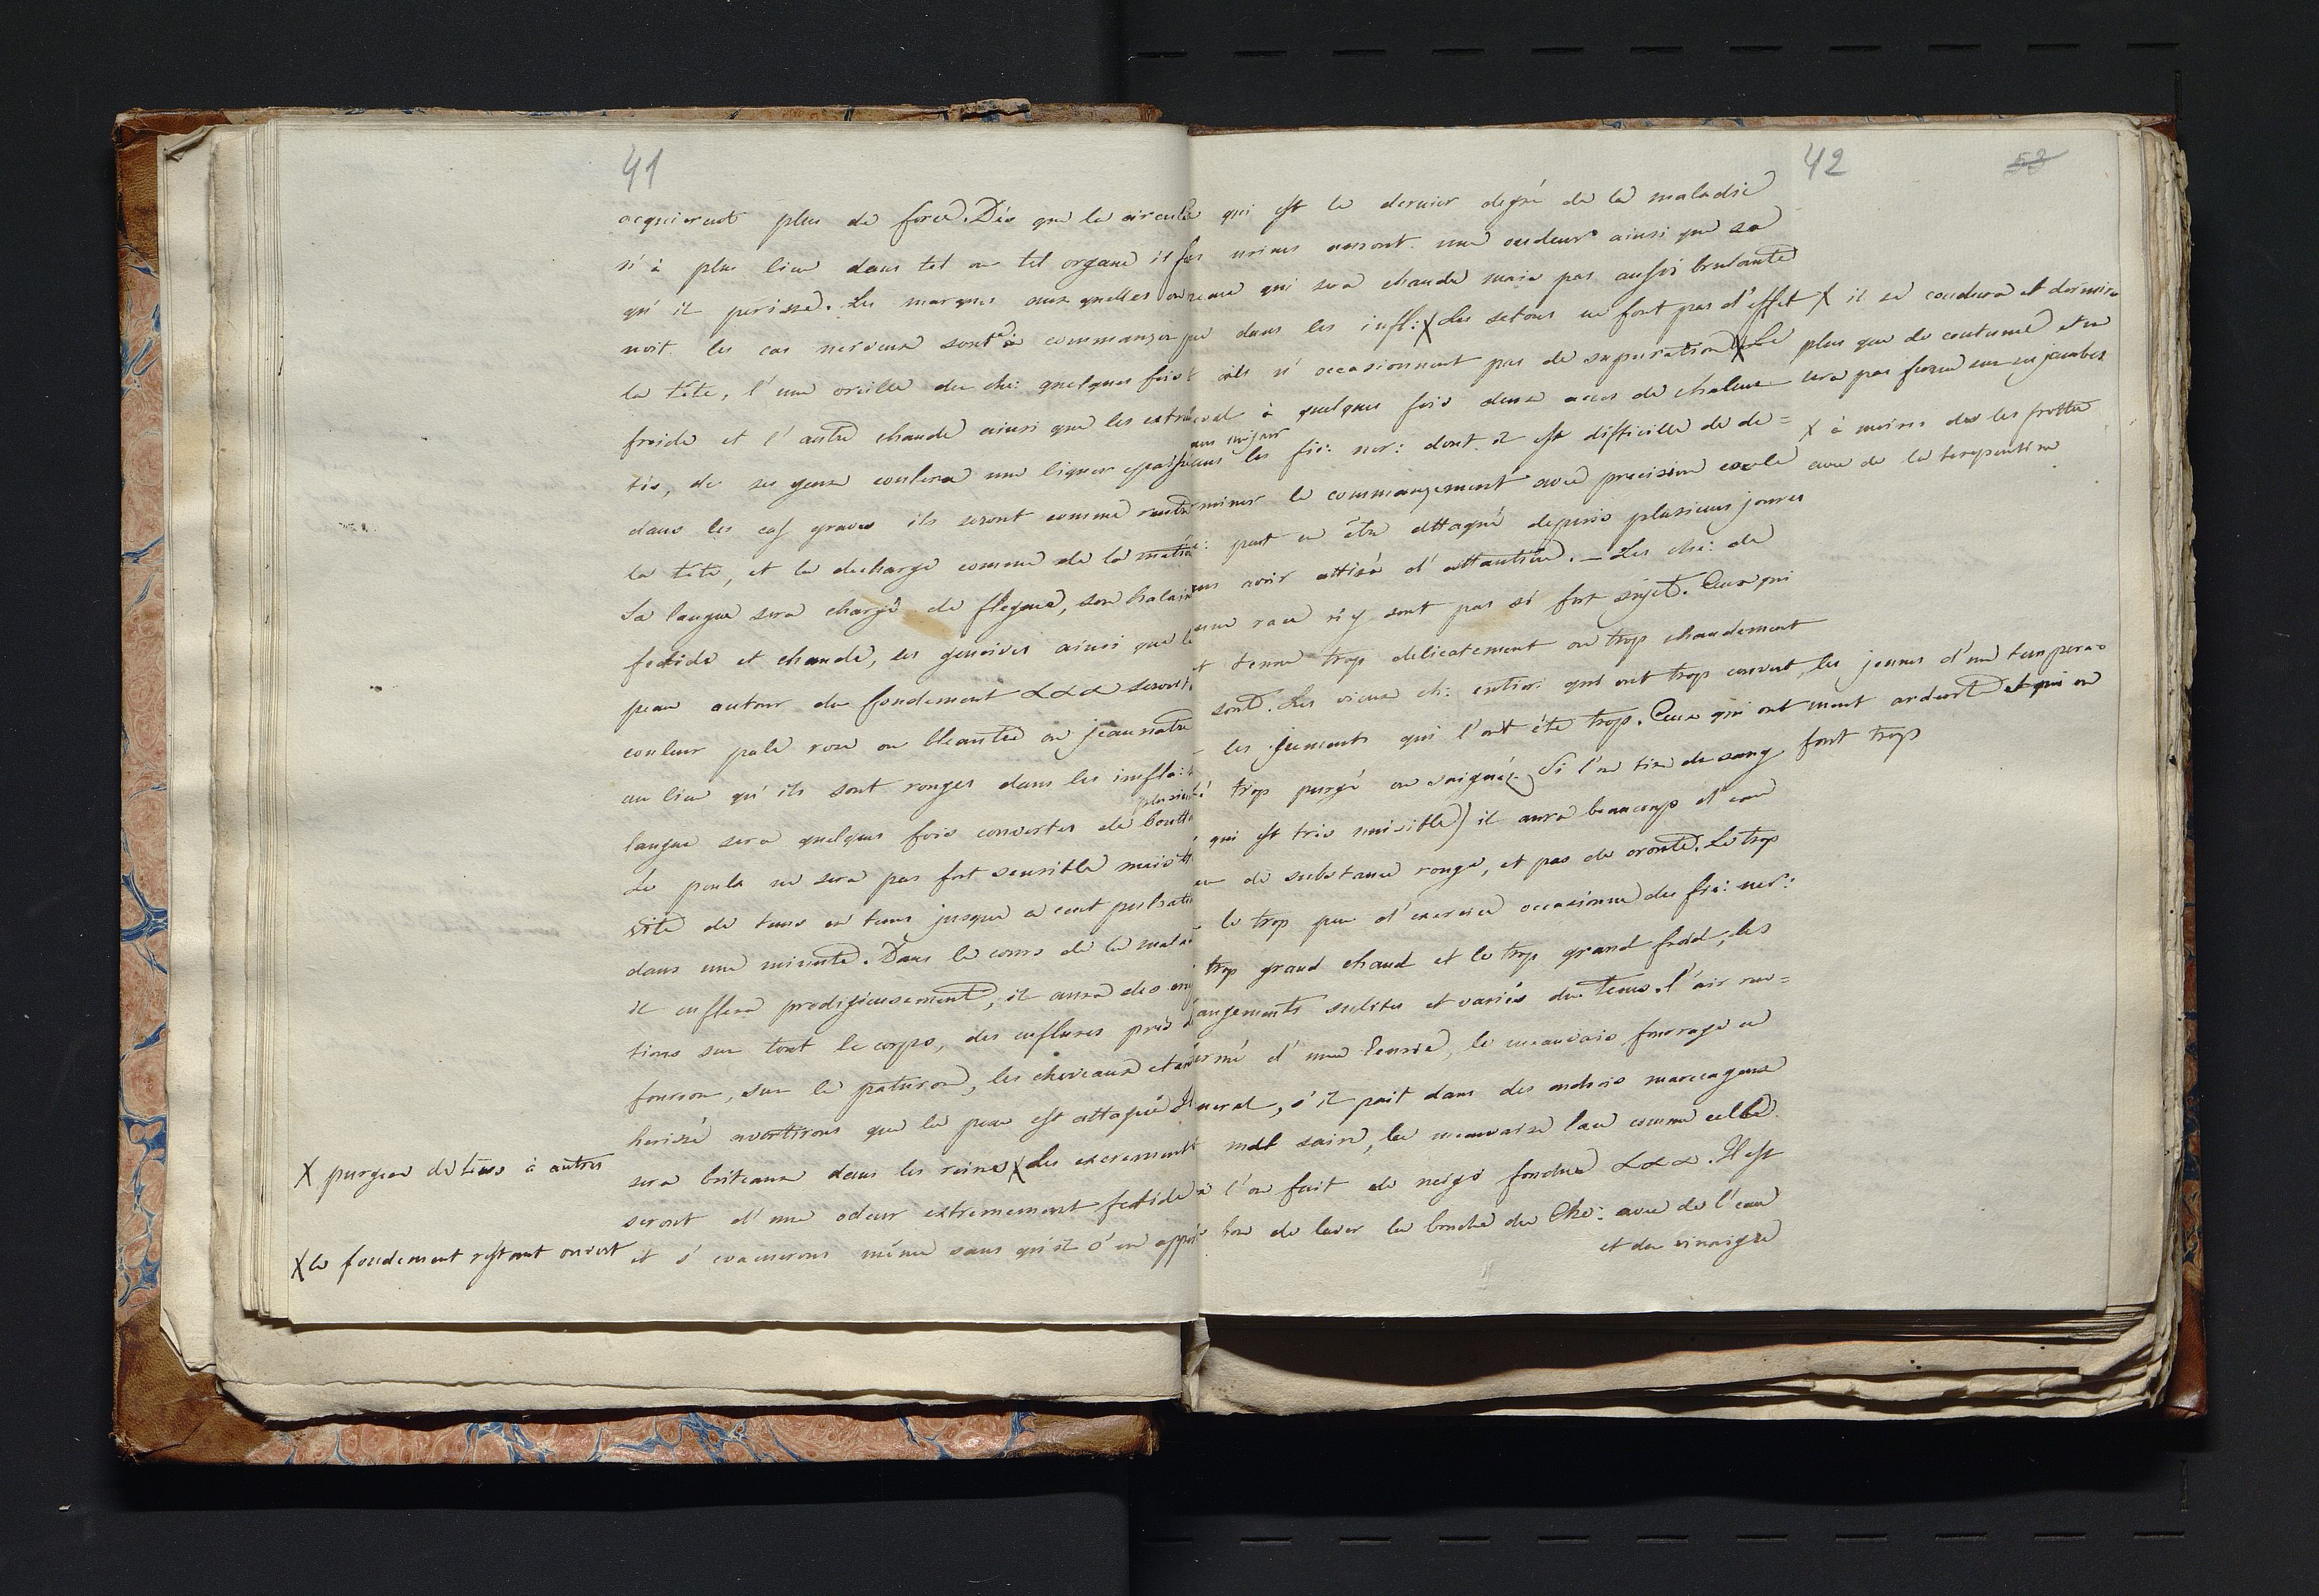 41
acquierent plus de force. Dès que la circula
n'à plus lieu dans tel ou tel organe il fa
qu'il perisse. Les marques aux quelles on
noit les cas nerveux sont à commançer
la tête, l'une oreille du che: quelques fois
froide et l'autre chaude ainsi que les extré
tés, de ses yeux coulera une liqueur epaisse
dans les cas graves ils seront comme rentré
la tête, et la decharge comme de la matiè
Sa langue sera chargé de flegme, son halain
fetide et chaude, ses gencives ainsi que la
peau autour du fondement &&& seront
couleur pale rose ou bleautre ou jeaunatre
au lieu qu'ils sont rouges dans les infla:
plusieu
langue sera quelques fois couvertes de bout
Le pouls ne sera pas fort sensible mais
vite de tems en tems jusque a cent pulsati
dans une minute. Dans le cours de la mala
il enflera prodigieusement, il aura des eru
tions sur tout le corps, des enflures près d
foureau, sur le paturon, les cheveaux etan
herissé avertirons que la peau est attaqué
sera buteaux dans les reins X Les excrements
seront d'une odeur extremement fetide
et s'evacuerons même sans qu'il s'en apper
X purgera de tems à autres
X le fondement restant ouvert
42
53
qui est le dernier degré de la maladie
urines auront une oudeur ainsi que sa
qui sera chaude mais pas aussi brulante
que dans les infl: X Les setons ne font pas d'effet
ils n'occasionnent pas de supuration X Le
eval à quelques fois deux acces de chaleur
par jour
ans les fie: ner: dont il est difficille de de=
rminer le commançement avec precision
peut en être attaqué depuis plusieurs jours
ans avoir attiré d'attantion. — Les che: de
une race n'y sont pas si fort sujet. Ceux qui
t tenue trop delicatement ou trop chaudement
sont. Les vieux ch: entier: qui ont trop couvert, les jeunes d'un tempera=
les juements qui l'ont été trop. Ceux qui ont ment ardent et qui en
trop purgé ou saigné (Si l'on tire de sang font trop
qui est très nuisible) il aura beaucoup d'eau
de substance rouge, et pas de croute. Le trop
le trop peu d'exercice occasionne des fie: ner:
trop grand chaud et le trop grand froid, les
angements subites et variés du tems. l'air ren=
ermé d'une l'eurie, le meauvais fourage en
neral, s'il pait dans des androis marecageux
mal sains, la meauvaise l'au comme celle
l'on fait de neige fondue &&&. Il est
bon de laver la bouche du Che: avec de l'eau
et du vinaigre
X il se couchera et dormira
plus que de coutume et ne
sera pas ferme sur ses jambes
X à moins de les frotter
avec de la terepentine